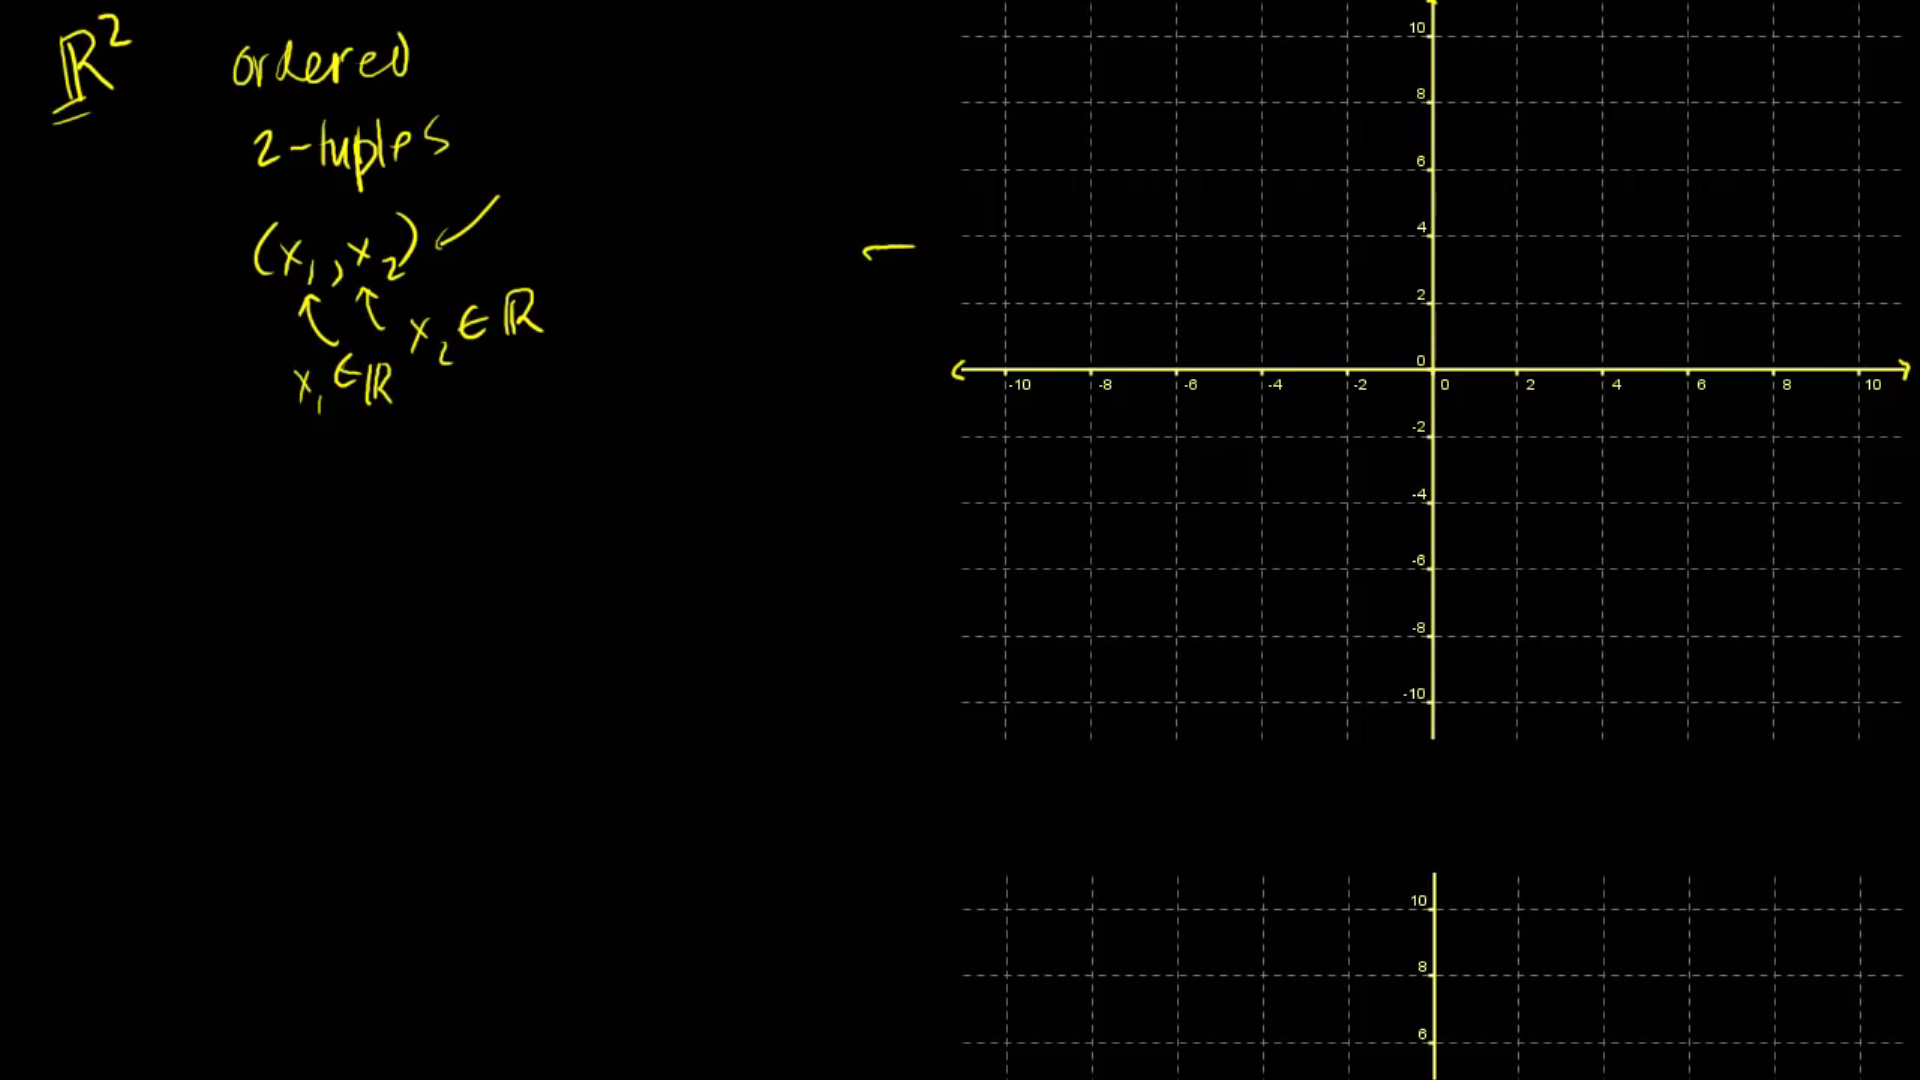 ℝ² ordered
2-tuples
(x₁, x₂)
x₂ ∈ ℝ
x₁ ∈ ℝ
10
8
6
4
2
0
-10 -8 -6 -4 -2 0 2 4 6 8 10
-2
-4
-6
-8
-10
10
8
6